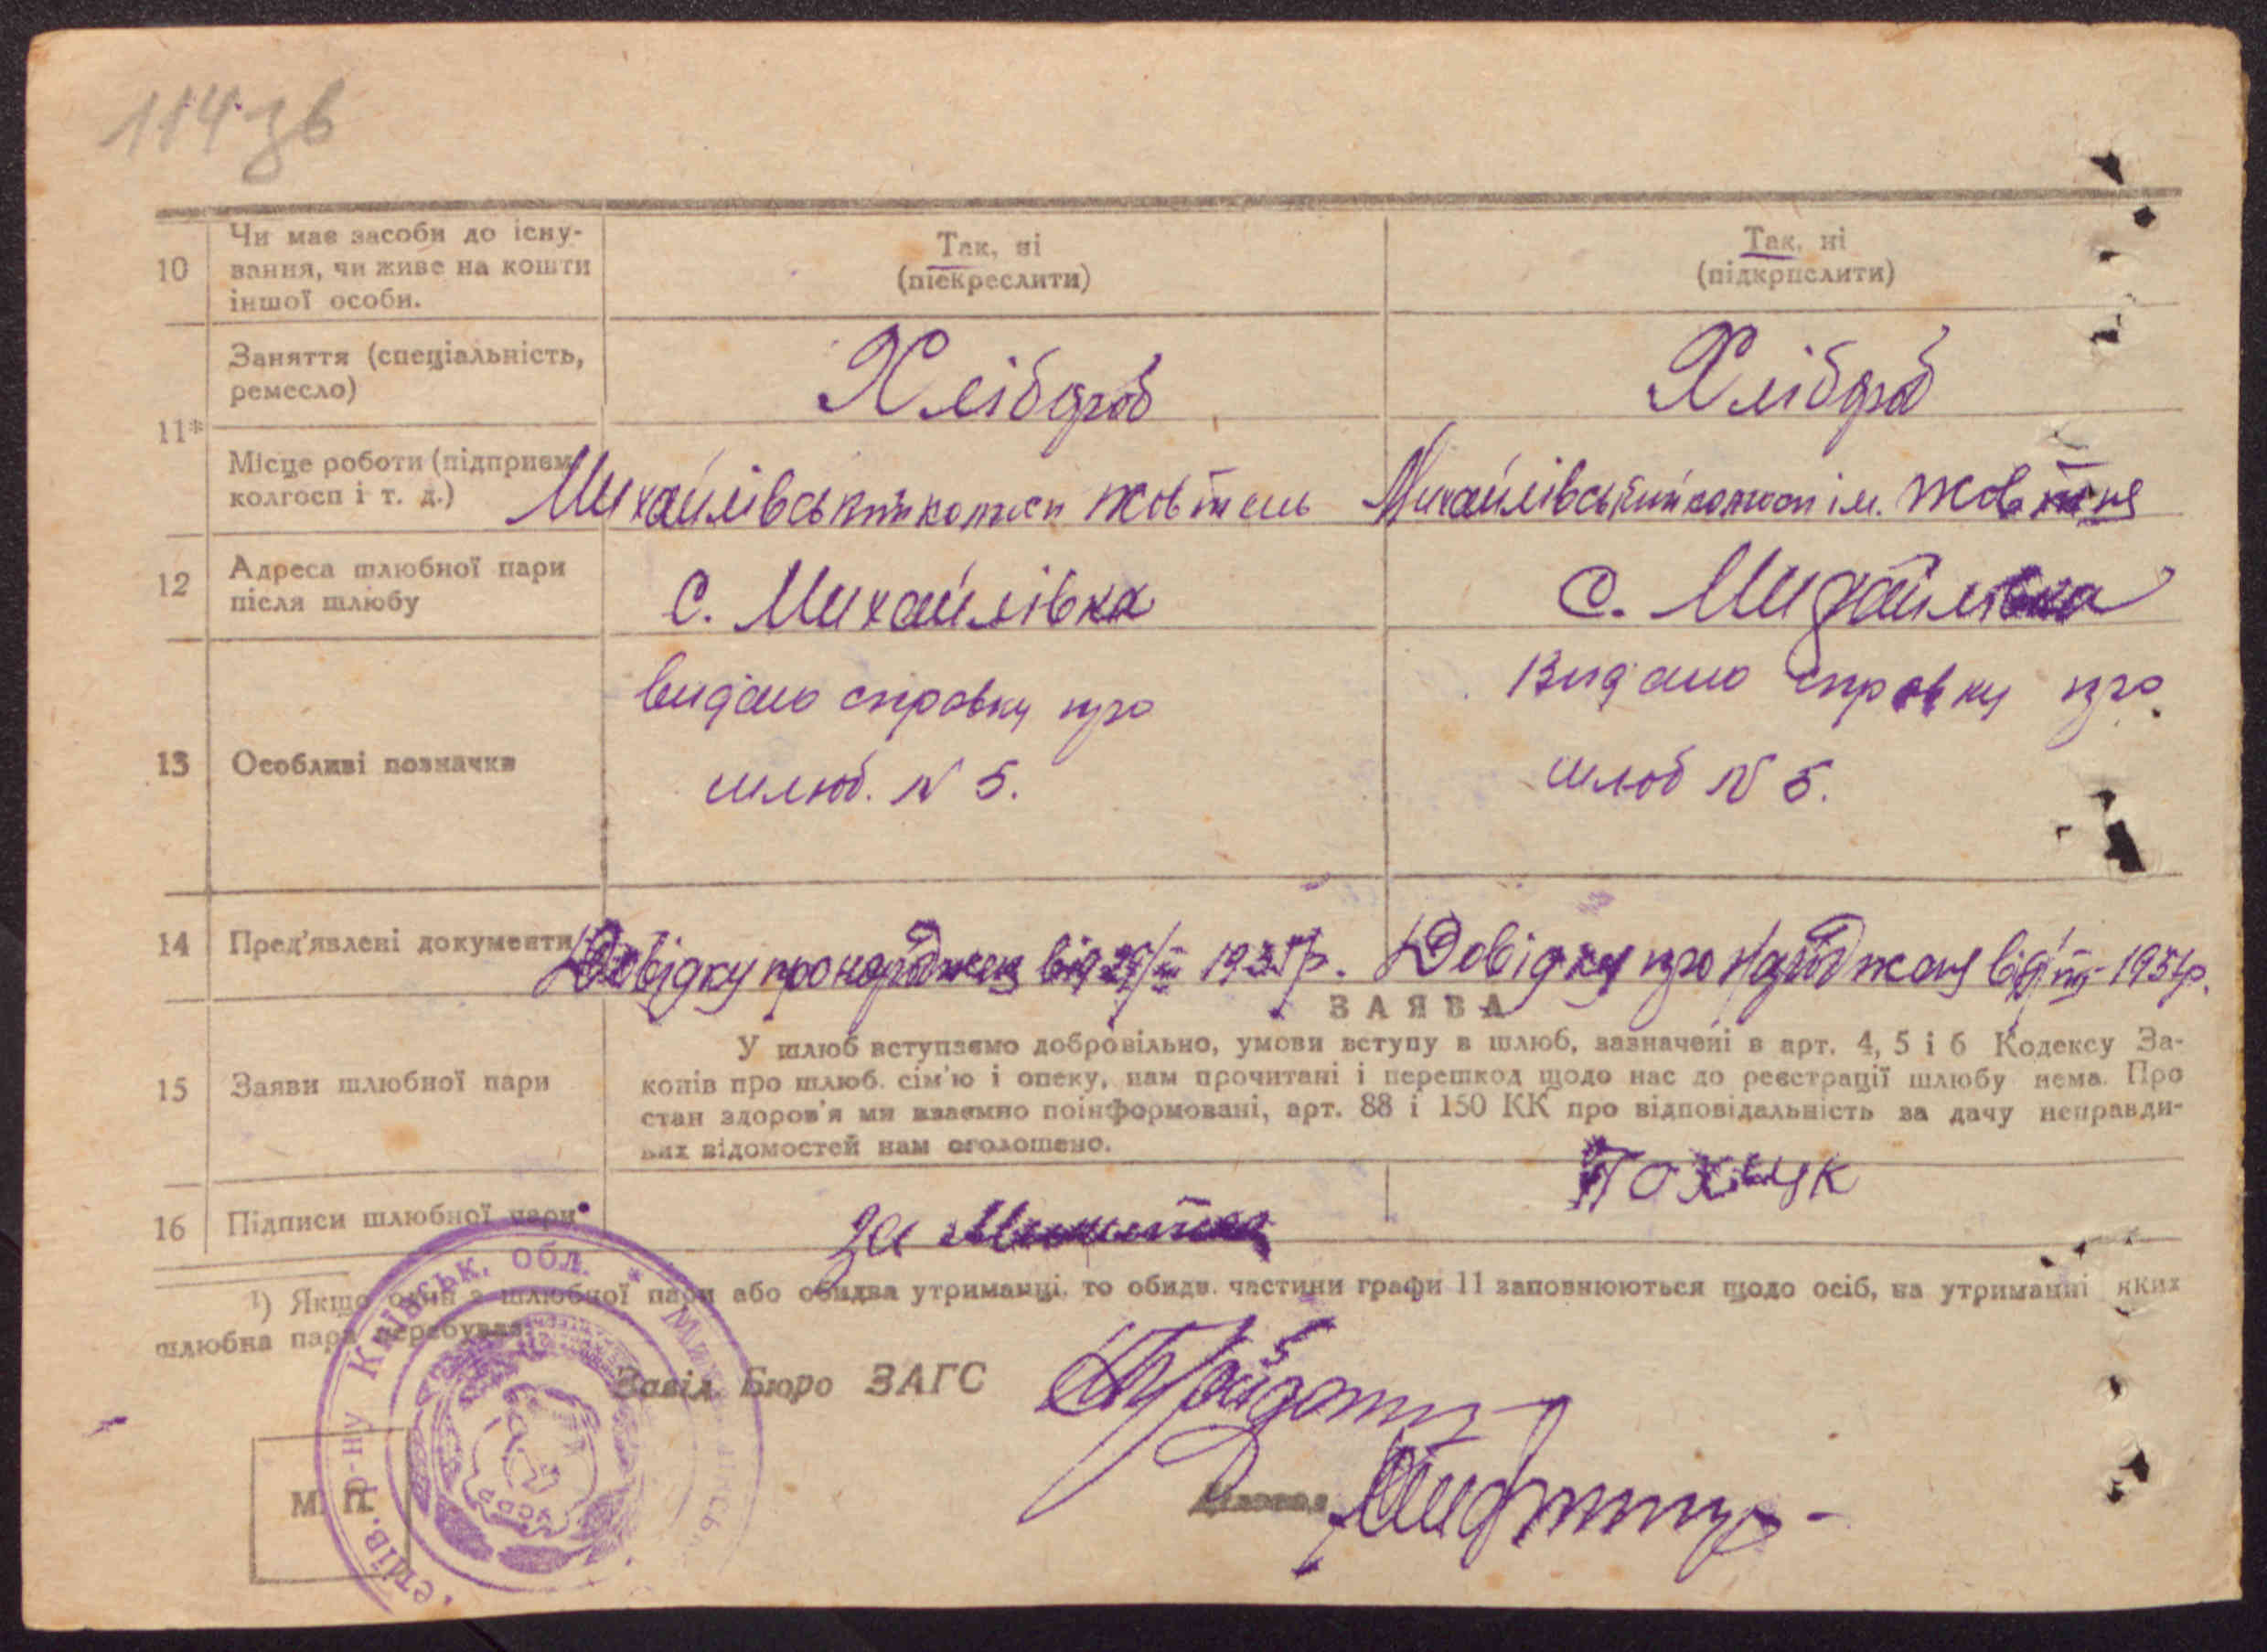 114 зв
10 Чи має засоби до існу-
вання, чи живе на кошти
іншої особи.
Так, ні
(піекреслити)
Так, ні
(підкрпслити)
11*
Заняття (спеціальність,
ремесло)
Хлібороб
Хлібороб
Місце роботи (підприєм
колгосп і т. д.)
Михайлівський колгосп Жовтень
Михайлівський колгосп ім. Жовтня
12 Адреса шлюбної пари
після шлюбу
С. Михайлівка
С. Михайлівка
13 Особливі позначки
видано справку про
шлюб. N 5.
Видано справку про
шлюб N 5.
14 Пред'явлені документи
Довідку про народжен від 193 р.
Довідку про народжен від 193 р.
ЗАЯВА
15 Заяви шлюбної пари
У шлюб вступаємо добровільно, умови вступу в шлюб, зазначені в арт. 4, 5 і 6 Кодексу За-
конів про шлюб. сім'ю і опеку, нам прочитані і перешкод щодо нас до реєстрації шлюбу нема. Про
стан здоров'я ми взаємно поінформовані, арт. 88 і 150 КК про відповідальність за дачу неправди-
вих відомостей нам оголошено.
16 Підписи шлюбної пари
За
¹) Якщо один з шлюбної пари або обидва утриманці, то обидв. частини графи 11 заповнюються щодо осіб, на утриманні яких
шлюбна пара перебуває.
Київськ. обл. * Мих
р-ну
УСРР
Завід Бюро ЗАГС
М. П.